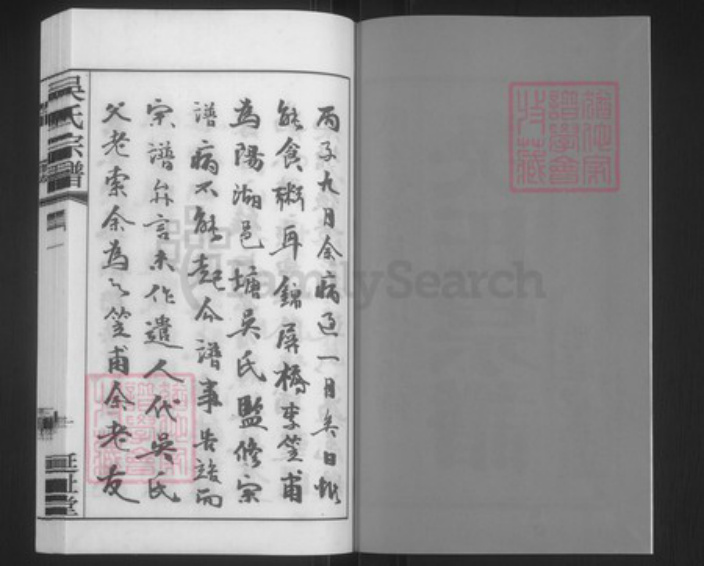 丙子九月余病逾一月矣日惟
能食粥耳錦屏橋李笠甫
為陽湖邑塘吳氏監修宗
譜病不能起今譜事告竣而
宗譜弁言未作遣人代吳氏
父老索余為之笠甫余老友
吳氏宗譜
FamilySearch
譜學會
收藏